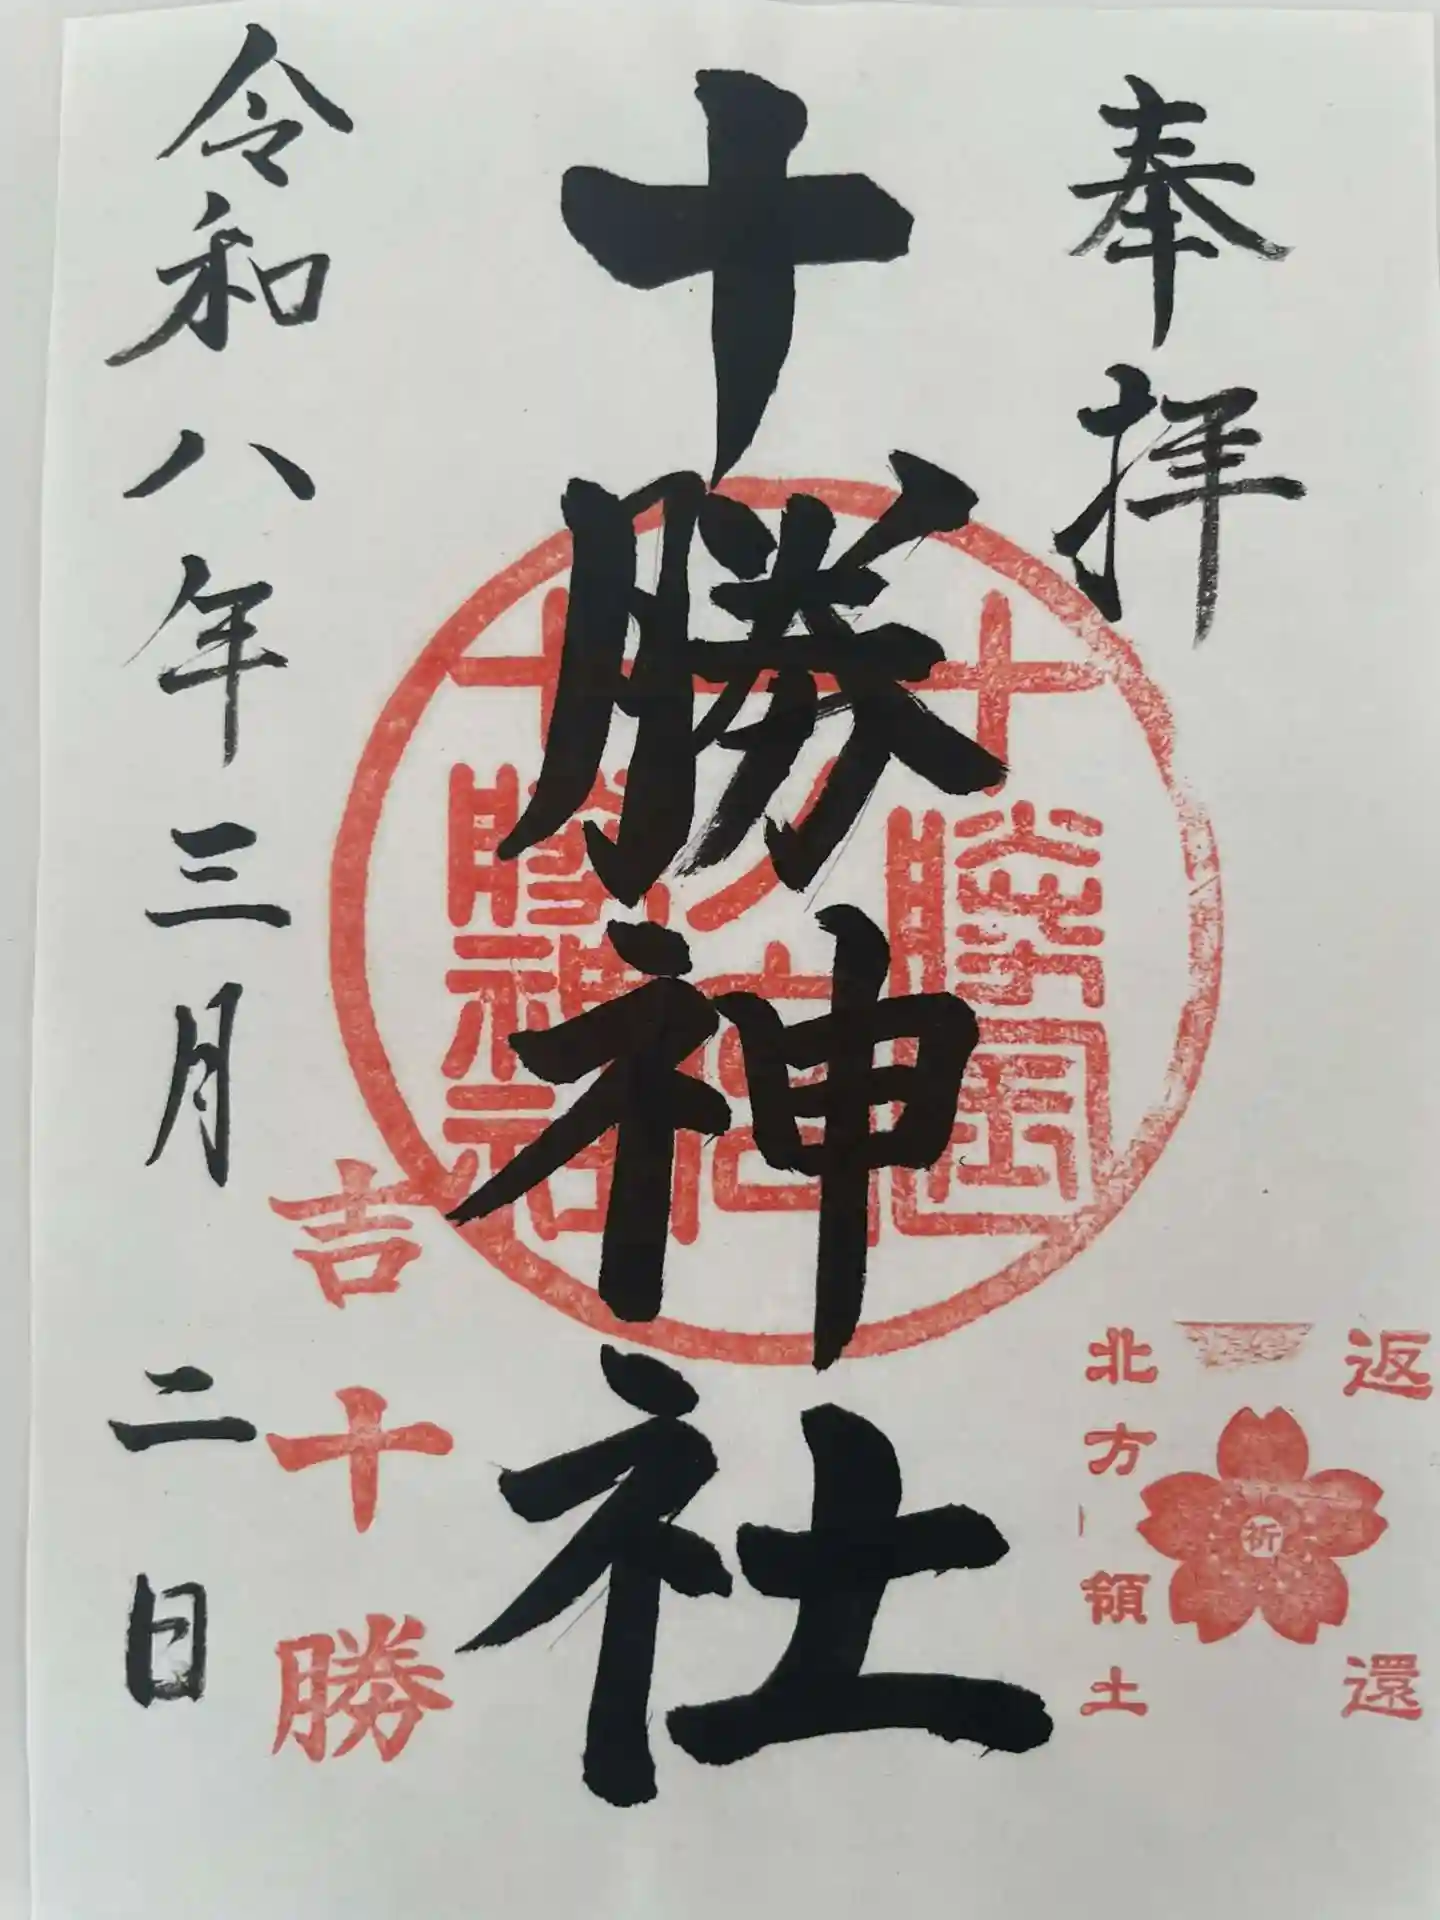 奉拝
十勝神社
令和八年三月二日
十勝國
十勝神社
吉十勝
返還
祈
北方領土